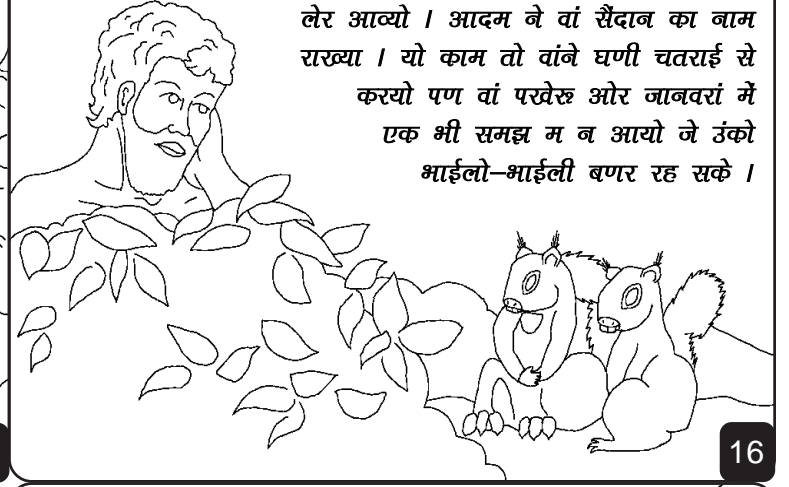 लेर आव्यो । आदम ने वां सैंदान का नाम
राख्या । यो काम तो वांने घणी चतराई से
करयो पण वां पखेरू ओर जानवरां में
एक भी समझ म न आयो जे उंको
भाईलो–भाईली बणर रह सके ।
16